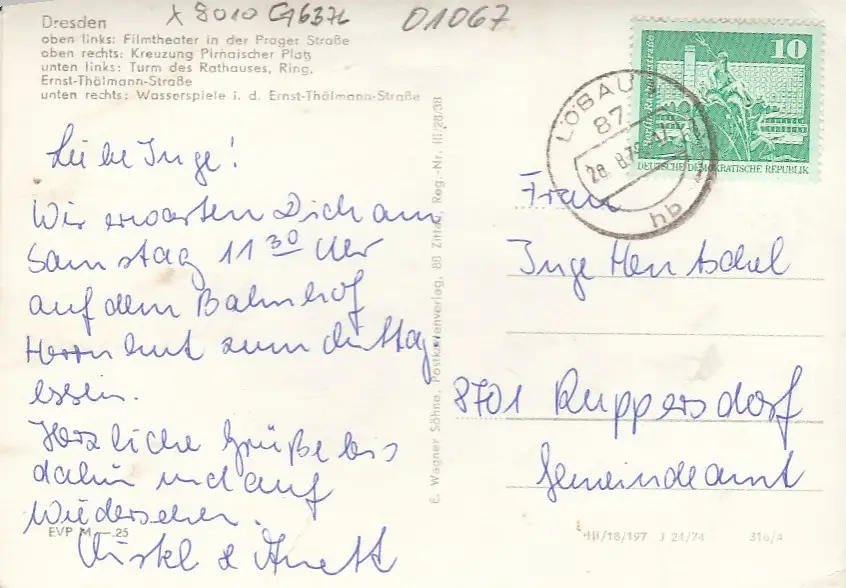 X 8010 G637c
01067
Dresden
oben links: Filmtheater in der Prager Straße
oben rechts: Kreuzung Pirnaischer Platz
unten links: Turm des Rathauses, Ring,
Ernst-Thälmann-Straße
unten rechts: Wasserspiele i. d. Ernst-Thälmann-Straße
Liebe Inge!
Wir erwarten Dich am
Samstag 11 30 Uhr
auf dem Bahnhof
Herrnhut zum Mittag
essen.
Herzliche Grüße bis
dahin und auf
Wiedersehen.
EVP M —.25
& Anett
E. Wagner Söhne, Postkartenverlag, 88 Zittau, Reg.-Nr. III/28/38
10
DEUTSCHE DEMOKRATISCHE REPUBLIK
LÖBAU
87
28. 8.75
hb
Frau
Inge Hentschel
8701 Ruppersdorf
Gemeindeamt
III/18/197 J 24/74 316/4